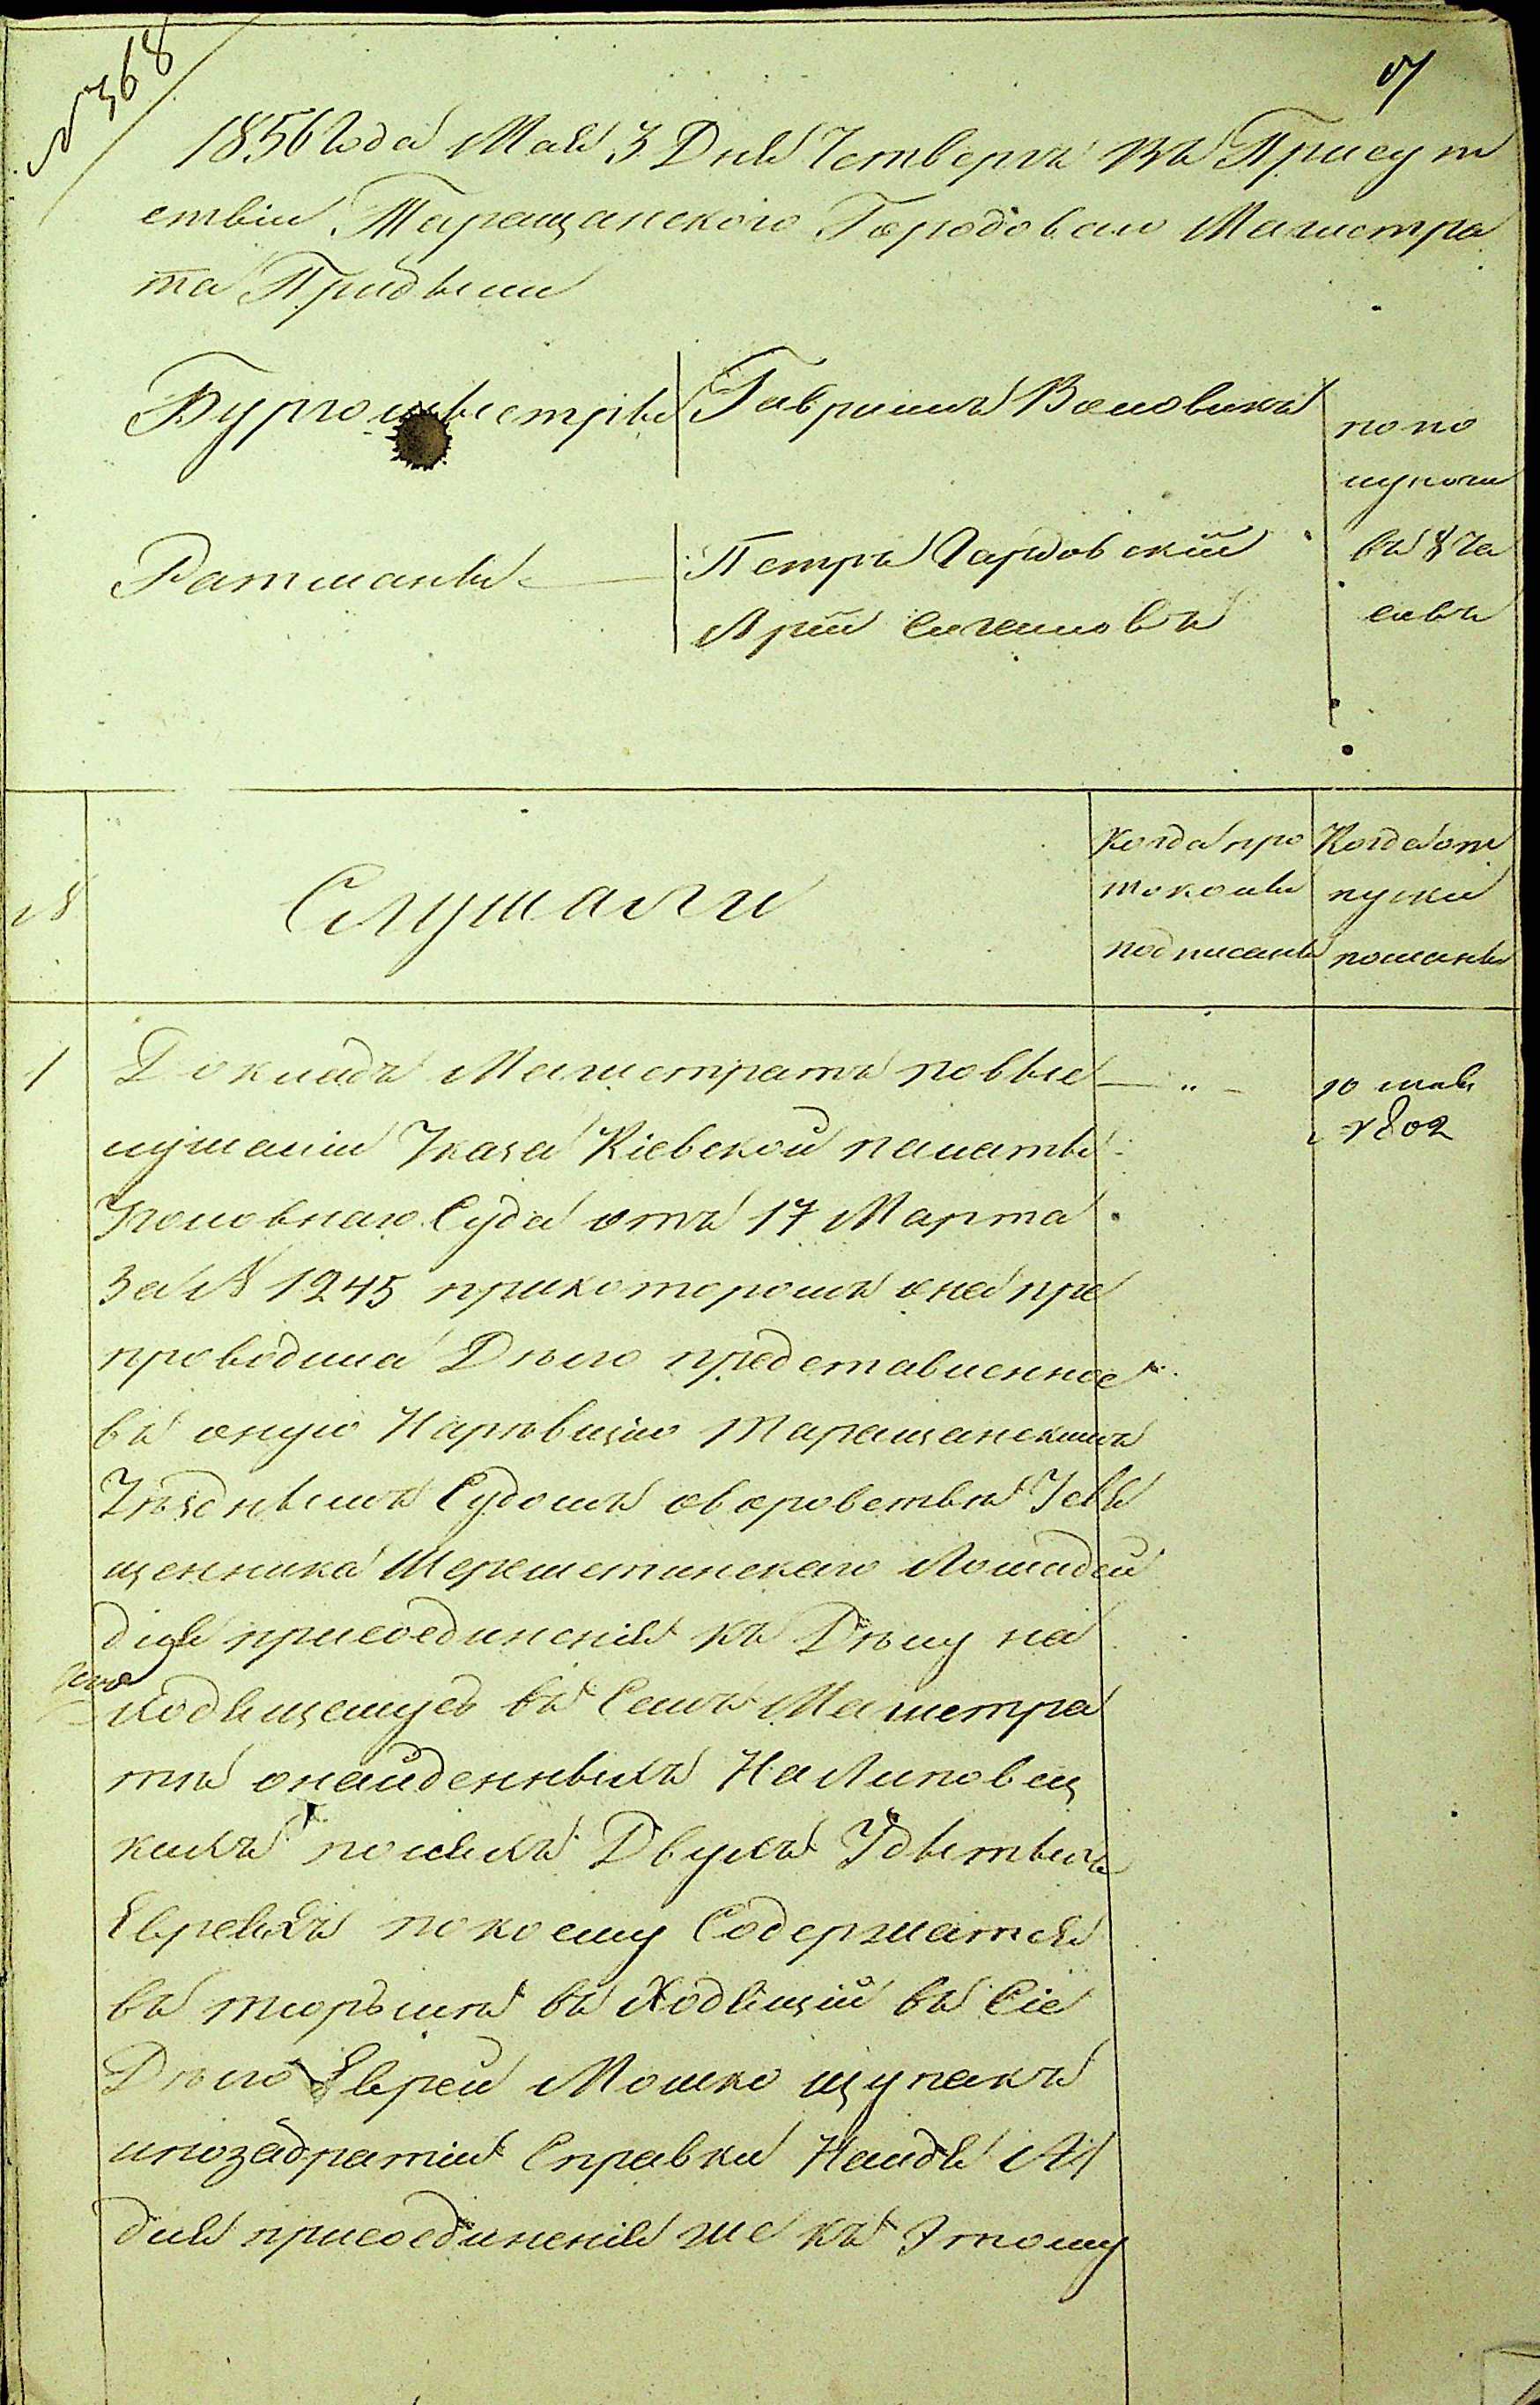 № 368
1856 Года Мая 3 Дня Четвергъ Въ Присут
ствіи Таращанскаго Городоваго Магистра
та Придьсны
Бургомыстры
Гаврилъ Воловикъ
по по
луночи
Ратманы
Петръ Гардовскій
въ 8 ча
совъ
№
Слушали
Когда про
токолы
подписаны
Когда от
пуски
посланы
1
Докладъ Магистратъ по выс
лушаніи Указа Кіевской палаты
Уголовнаго Суда отъ 17 Марта
За № 1245 при которомъ она пре
проводила Дѣло представленное
въ оную На ревизію Таращанскимъ
Уѣзднымъ Судомъ о воровствѣ У Свя
щенника Шереметинскаго Лошадей
для присоединенія къ Дѣлу на
ходящемуся въ Семъ Магистра
тѣ о найденныхъ На Липовец
кихъ поляхъ Двухъ Убитыхъ
Евреяхъ по коему Содержится
въ тюрьмѣ въ Ходящій въ Сіе
Дѣло Еврей Мошко щупакъ
и по забратіи Справки Нашолъ А)
для присоединенія же къ Этому
10 мая
№ 802